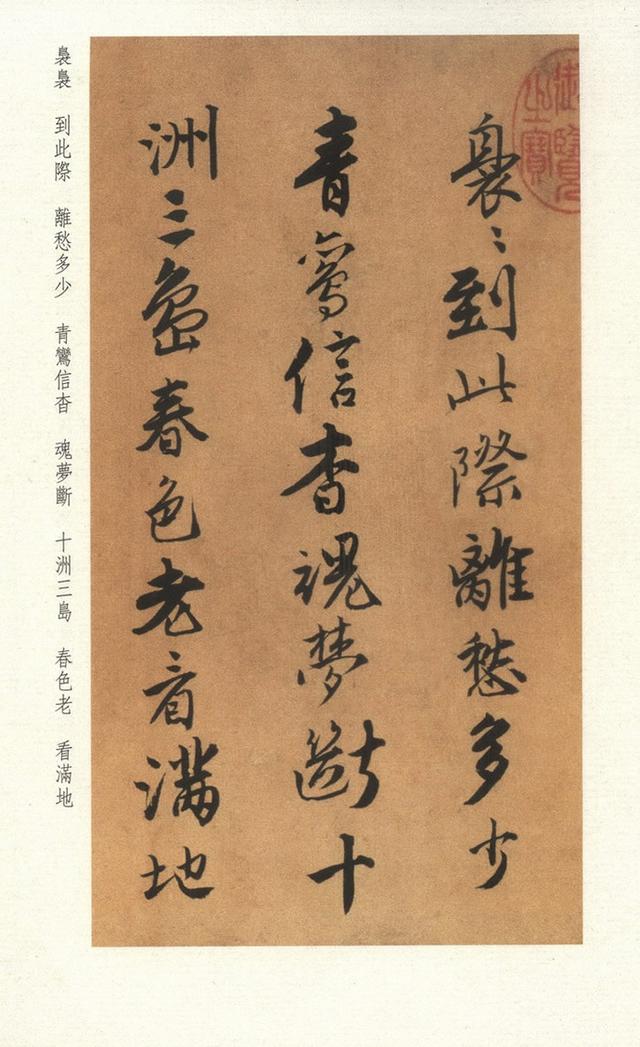 裊〻到此際離愁多少
青鸞信杳魂夢斷十
洲三島春色老看滿地
御覽之寶
裊裊 到此際 離愁多少 青鸞信杳 魂夢斷 十洲三島 春色老 看滿地